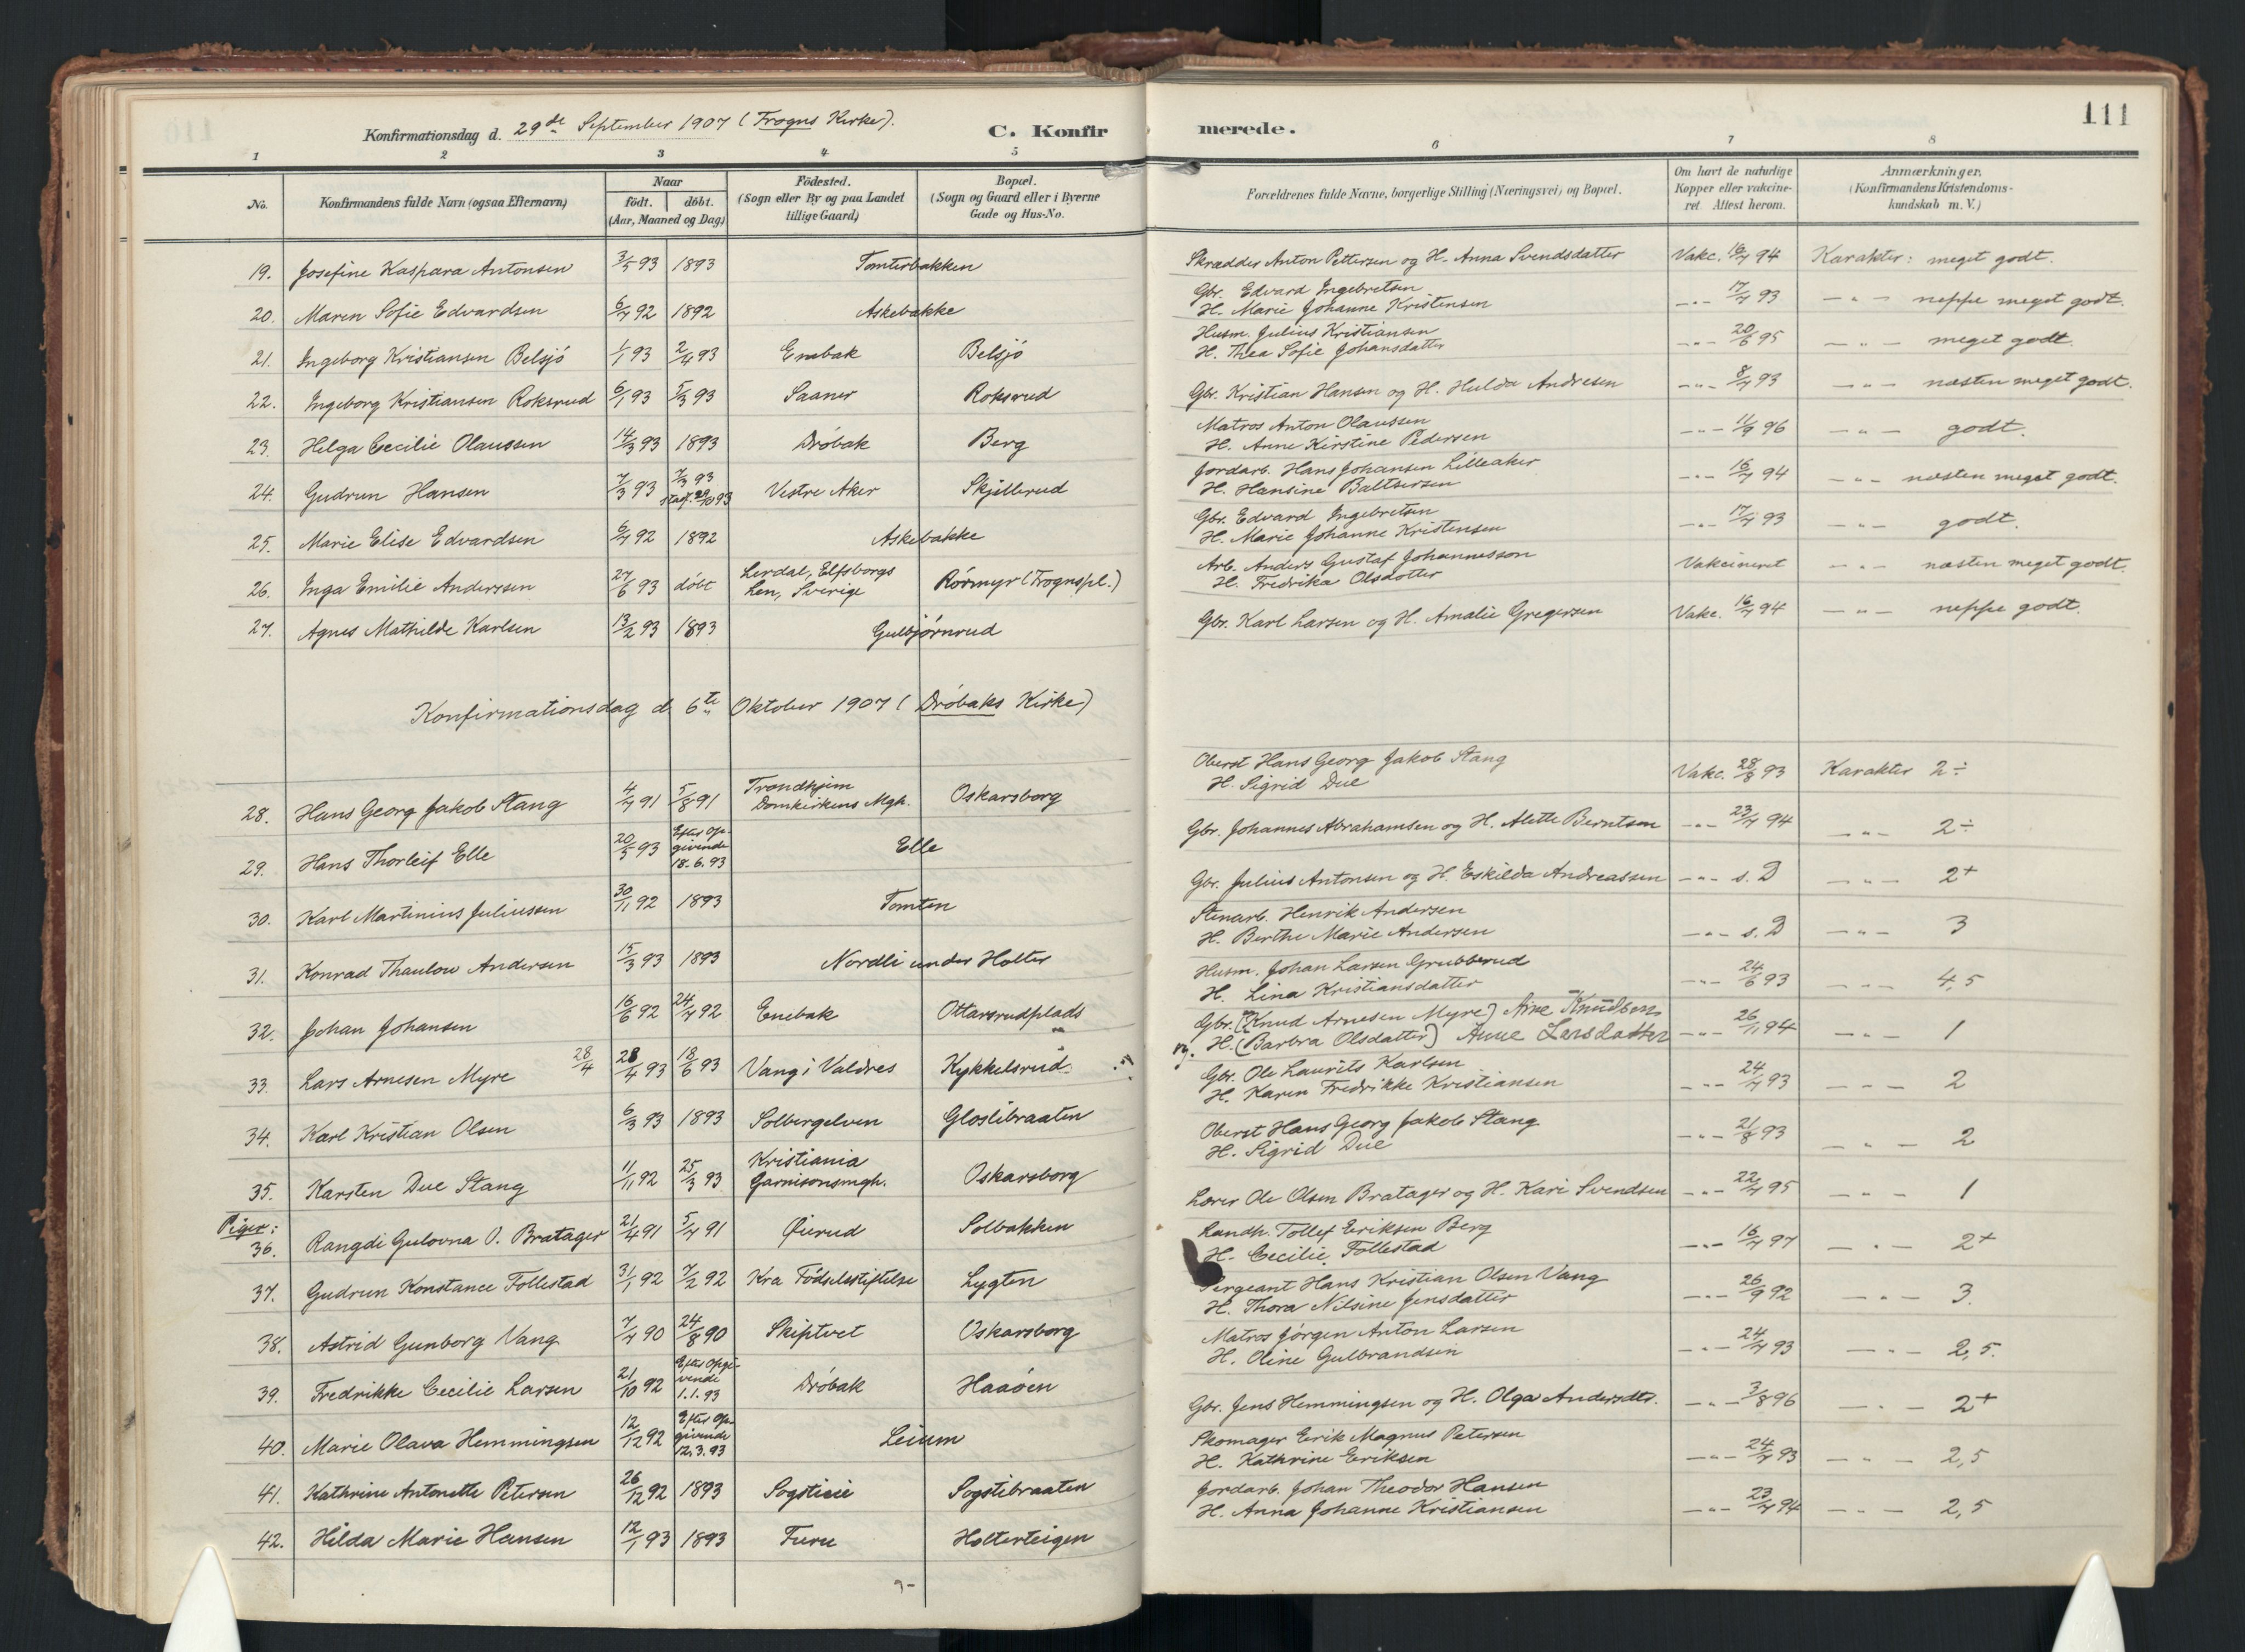 111
Konfirmationsdag d. 29de September 1907 (Frogns Kirke). C. Konfirmerede.
1 2 3 4 5 6 7 8
No. Konfirmandens fulde Navn (ogsaa Efternavn) Naar födt. döbt. (Aar, Maaned og Dag) Födested. (Sogn eller By og paa Landet tillige Gaard) Bopæl. (Sogn og Gaard eller i Byerne Gade og Hus-No. Forældrenes fulde Navne, borgerlige Stilling (Næringsvei) og Bopæl. Om havt de naturlige Kopper eller vakcineret. Attest herom. Anmærkninger. (Konfirmandens Kristendomskundskab m. V.)
19. Josefine Kaspara Antonsen 3/5 93 1893 Tomterbakken Skrædder Anton Pettersen og H. Anna Svendsdatter Vakc. 16/7 94 Karakter: meget godt.
20. Maren Sofie Edvardsen 6/7 92 1892 Askebakke Gbr. Edvard Ingebretsen
H. Marie Johanne Kristensen -"- 17/7 93 -"- neppe meget godt.
21. Ingeborg Kristiansen Belsjö 1/1 93 2/4 93 Enebak Belsjö Husm. Julius Kristiansen
H. Thea Sofie Johansdatter -"- 20/6 95 -"- meget godt.
22. Ingeborg Kristiansen Roksrud 6/1 93 5/3 93 Saaner Roksrud Gbr. Kristian Hansen og H. Hulda Andresen -"- 8/7 93 -"- næsten meget godt.
23. Helga Cecilie Olaussen 14/3 93 1893 Dröbak Berg Matros Anton Olaussen
H. Anne Kirstine Pedersen -"- 11/9 96 -"- godt.
24. Gudrun Hansen 7/3 93 7/3 93 stadf. 29/10 93 Vestre Aker Skjellerud Jordarb. Hans Johansen Lilleaker
H. Hansine Baltsersen -"- 16/7 94 -"- næsten meget godt.
25. Marie Elise Edvardsen 6/7 92 1892 Askebakke Gbr. Edvard Ingebretsen
H. Marie Johanne Kristensen -"- 17/7 93 -"- godt.
26. Inga Emilie Anderssen 27/6 93 döbt Lerdal, Elfsborgs Len, Sverige Rörmyr (Frognspl.) Arb. Anders Gustaf Johannesson
H. Fredrika Olsdotter Vakcineret -"- næsten meget godt.
27. Agnes Mathilde Karlsen 13/2 93 1893 Gulbjörnrud Gbr. Karl Larsen og H. Amalie Gregersen Vakc. 16/7 94 -"- neppe godt.
Konfirmationsdag d 6te Oktober 1907 (Dröbaks Kirke)
28. Hans Georg Jakob Stang 4/7 91 5/8 91 Trondhjem Domkirkens Mgh. Oskarsborg Oberst Hans Georg Jakob Stang
H. Sigrid Due Vakc. 28/8 93 Karakter 2÷
29. Hans Thorleif Elle 20/5 93 Efter opgivende 18.6.93 Elle Gbr. Johannes Abrahamsen og H. Alette Berntsen -"- 23/7 94 -"- 2÷
30. Karl Martinius Juliussen 30/11 92 1893 Tomten Gbr. Julius Antonsen og H. Eskilda Andreassen -"- s. D -"- 2+
31. Konrad Thaulow Andersen 15/3 93 1893 Nordli under Holter Stenarb. Henrik Andersen
H. Berthe Marie Andersen -"- s. D -"- 3
32. Johan Johansen 16/6 92 24/7 92 Enebak Ottarsrudplads Husm. Johan Larsen Grubberud
H. Lina Kristiansdatter -"- 24/6 93 -"- 4,5
33. Lars Arnesen Myre 28/4 28/4 93 18/6 93 Vang i Valdres Kykkelsrud Gbr. (Knud Arnesen Myre) Arne Knudsen
og H. (Barbra Olsdatter) Anne Larsdatter -"- 26/11 94 -"- 1
34. Karl Kristian Olsen 6/3 93 1893 Solbergelven Gloslibraaten Gbr. Ole Laurits Karlsen
H. Karen Fredrikke Kristiansen -"- 24/7 93 -"- 2
35. Karsten Due Stang 11/11 92 25/3 93 Kristiania Garnisonsmgh. Oskarsborg Oberst Hans Georg Jakob Stang
H. Sigrid Due -"- 21/8 93 -"- 2
Piger:
36. Rangdi Gulovna O. Bratager 21/4 91 5/7 91 Öierud Solbakken Lærer Ole Olsen Bratager og H. Kari Svendsen -"- 22/7 95 -"- 1
37. Gudrun Konstance Follestad 31/1 92 7/2 92 Kra Födselsstiftelse Lygten Landh. Tollef Eriksen Berg
H. Cecilie Follestad -"- 16/7 97 -"- 2+
38. Astrid Gunborg Vang 7/7 90 24/8 90 Skiptvet Oskarsborg Sergeant Hans Kristian Olsen Vang
H. Thora Nilsine Jensdatter -"- 26/9 92 -"- 3.
39. Fredrikke Cecilie Larsen 21/10 92 Efter opgivende 1.1.93 Dröbak Haaöen Matros Jörgen Anton Larsen
H. Oline Gulbrandsen -"- 24/7 93 -"- 2,5.
40. Marie Olava Hemmingsen 12/12 92 Efter opgivende 12.3.93 Leium Gbr. Jens Hemmingsen og H. Olga Andersdtr. -"- 3/8 96 -"- 2+
41. Kathrine Antonette Petersen 26/12 92 1893 Sogstieie Sogstibraaten Skomager Erik Magnus Petersen
H. Kathrine Eriksen -"- 24/7 93 -"- 2,5
42. Hilda Marie Hansen 12/1 93 1893 Furu Holterteigen Jordarb. Johan Theodor Hansen
H. Anna Johanne Kristiansen -"- 23/7 94 -"- 2,5